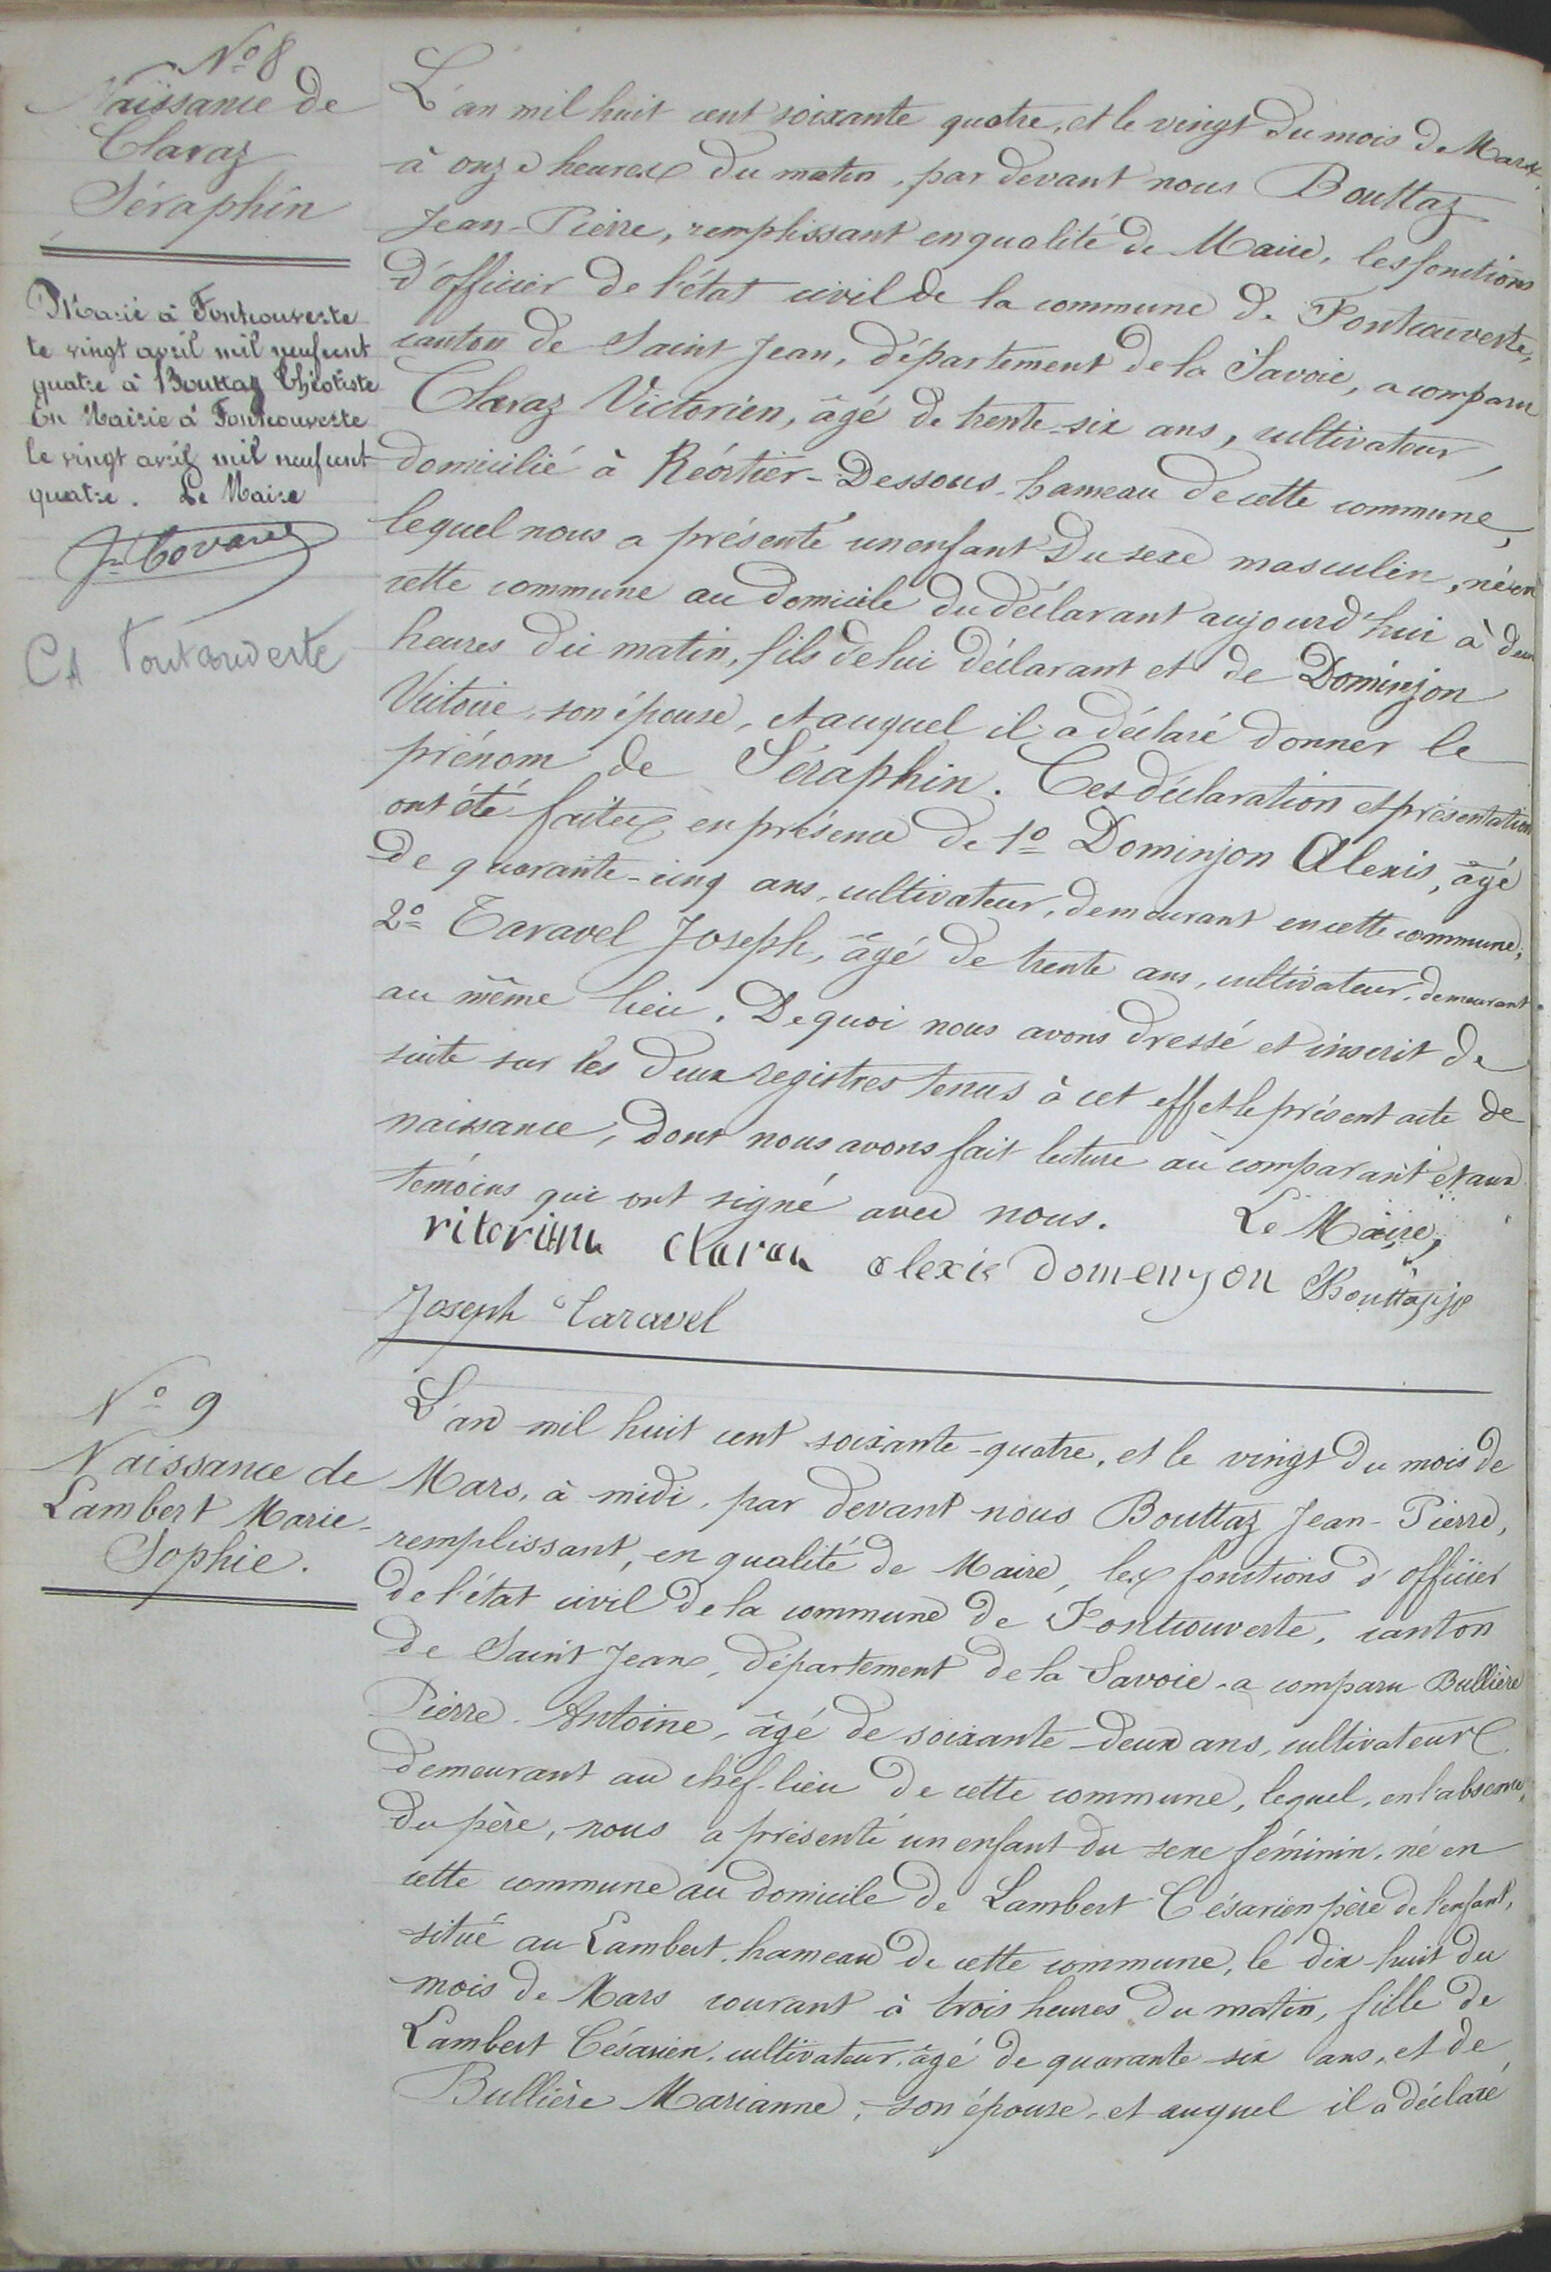 No 8
Naissance de
Claraz
Séraphin
L'an mil huit cent soixante quatre, et le vingt du mois de Mars
à onze heures du matin, par devant nous Bouttaz
Jean-Pierre, remplissant en qualité de Maire, les fonctions
d'officier de l'état civil de la commune de Fontcouverte,
canton de Saint Jean, département de la Savoie, a comparu
Claraz Victorien, âgé de trente-six ans, cultivateur
domicilié à Réortier-Dessous, hameau de cette commune,
lequel nous a présenté un enfant du sexe masculin, né en
cette commune au domicile du déclarant aujourd'hui à deux
heures du matin, fils de lui déclarant et de Dominjon
Victoire, son épouse, et auquel il a déclaré donner le
prénom de Séraphin. Ces déclaration et présentation
ont été faites en présence de 1o Dominjon Alexis, âgé
de quarante-cinq ans, cultivateur, demeurant en cette commune;
2o Taravel Joseph, âgé de trente ans, cultivateur, demeurant
au même lieu. De quoi nous avons dressé et inscrit de
suite sur les deux registres tenus à cet effet le présent acte de
naissance, dont nous avons fait lecture au comparant et aux
témoins qui ont signé avec nous. Le Maire,
claraz alexis domenjon Bouttaz jp
Joseph Taravel
Marié à Fontcouverte
le vingt avril mil neuf cent
quatre à Bouttaz Théotiste
En Mairie à Fontcouverte
le vingt avril mil neuf cent
quatre. Le Maire
CA Fontcouverte
No 9
Naissance de
Lambert Marie-
Sophie.
L'an mil huit cent soixante-quatre, et le vingt du mois de
Mars, à midi, par devant nous Bouttaz Jean-Pierre,
remplissant, en qualité de Maire, les fonctions d'officier
de l'état civil de la commune de Fontcouverte, canton
de Saint Jean, département de la Savoie, a comparu Bullière
Pierre-Antoine, âgé de soixante-deux ans, cultivateur
demeurant au chef-lieu de cette commune, lequel, en l'absence
du père, nous a présenté un enfant du sexe féminin, né en
cette commune au domicile de Lambert Césarien père de l'enfant,
situé au Lambert, hameau de cette commune, le dix huit du
mois de Mars courant à trois heures du matin, fille de
Lambert Césarien, cultivateur, âgé de quarante six ans, et de
Bullière Marianne, son épouse, et auquel il a déclaré